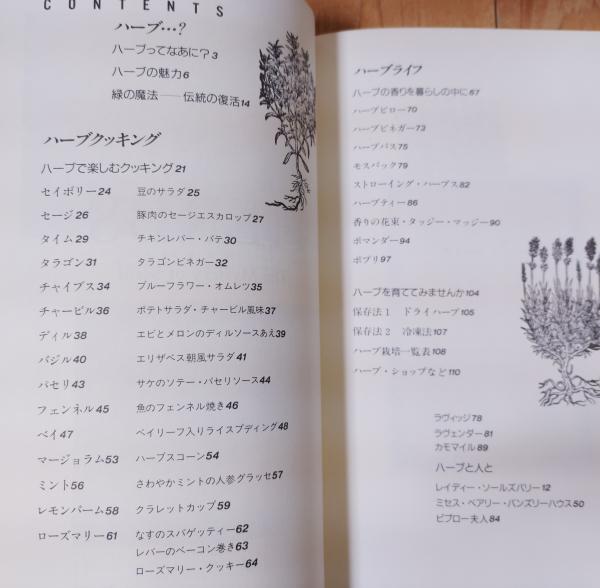 CONTENTS
ハーブ…?
ハーブってなあに? 3
ハーブの魅力 6
緑の魔法――伝統の復活 14
ハーブクッキング
ハーブで楽しむクッキング 21
セイボリー 24 豆のサラダ 25
セージ 26 豚肉のセージエスカロップ 27
タイム 29 チキンレバー・パテ 30
タラゴン 31 タラゴンビネガー 32
チャイブス 34 ブルーフラワー・オムレツ 35
チャービル 36 ポテトサラダ・チャービル風味 37
ディル 38 エビとメロンのディルソースあえ 39
バジル 40 エリザベス朝風サラダ 41
パセリ 43 サケのソテー・パセリソース 44
フェンネル 45 魚のフェンネル焼き 46
ベイ 47 ベイリーフ入りライスプディング 48
マージョラム 53 ハーブスコーン 54
ミント 56 さわやかミントの人参グラッセ 57
レモンバーム 58 クラレットカップ 59
ローズマリー 61 なすのスパゲッティー 62
レバーのベーコン巻き 63
ローズマリー・クッキー 64
ハーブライフ
ハーブの香りを暮らしの中に 67
ハーブピロー 70
ハーブビネガー 73
ハーブバス 75
モスバック 79
ストローイング・ハーブス 82
ハーブティー 86
香りの花束・タッジー・マッジー 90
ポマンダー 94
ポプリ 97
ハーブを育ててみませんか 104
保存法1 ドライハーブ 105
保存法2 冷凍法 107
ハーブ栽培一覧表 108
ハーブ・ショップなど 110
ラヴィッジ 78
ラヴェンダー 81
カモマイル 89
ハーブと人と
レイディー・ソールズバリー 12
ミセス・ベアリー・バンズリーハウス 50
ビブロー夫人 84